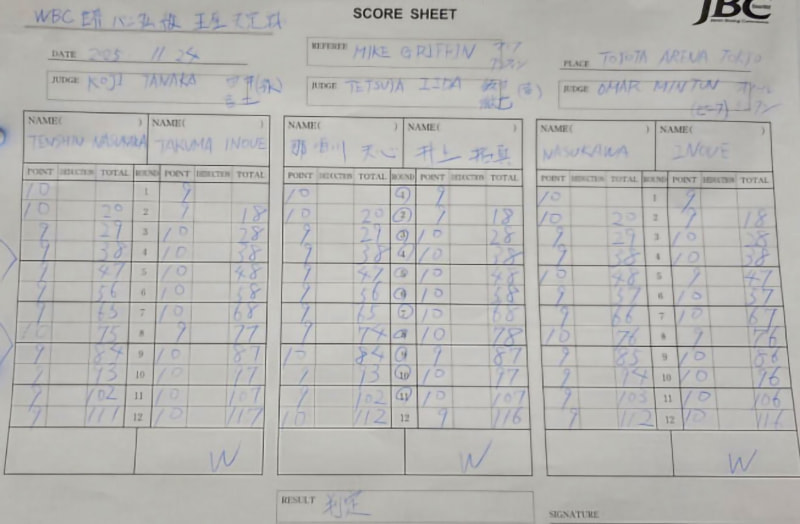 SCORE SHEET
JBC
WBC
DATE 2025 11 24
REFEREE MIKE GRIFFIN
PLACE TOYOTA ARENA TOKYO
JUDGE KOJI TANAKA
JUDGE TETSUYA IIDA
JUDGE OMAR MINTUN
NAME( ) NAME( ) NAME( ) NAME( ) NAME( ) NAME( )
TENSHIN NASUKAWA TAKUMA INOUE 那須川 天心 井上 拓真 NASUKAWA INOUE
POINT DEDUCTION TOTAL ROUND POINT DEDUCTION TOTAL POINT DEDUCTION TOTAL ROUND POINT DEDUCTION TOTAL POINT DEDUCTION TOTAL ROUND POINT DEDUCTION TOTAL
10 1 9 10 1 9 10 1 9
10 20 2 9 18 10 20 2 9 18 10 20 2 9 18
9 29 3 10 28 9 29 3 10 28 9 29 3 10 28
9 38 4 10 38 9 38 4 10 38 9 38 4 10 38
9 47 5 10 48 9 47 5 10 48 10 48 5 9 47
9 56 6 10 58 9 56 6 10 58 9 57 6 10 57
9 65 7 10 68 9 65 7 10 68 9 66 7 10 67
10 75 8 9 77 9 74 8 10 78 10 76 8 9 76
9 84 9 10 87 10 84 9 9 87 9 85 9 10 86
9 93 10 10 97 9 93 10 10 97 9 94 10 10 96
9 102 11 10 107 9 102 11 10 107 9 103 11 10 106
9 111 12 10 117 10 112 12 9 116 9 112 12 10 116
W W W
RESULT 判定
SIGNATURE